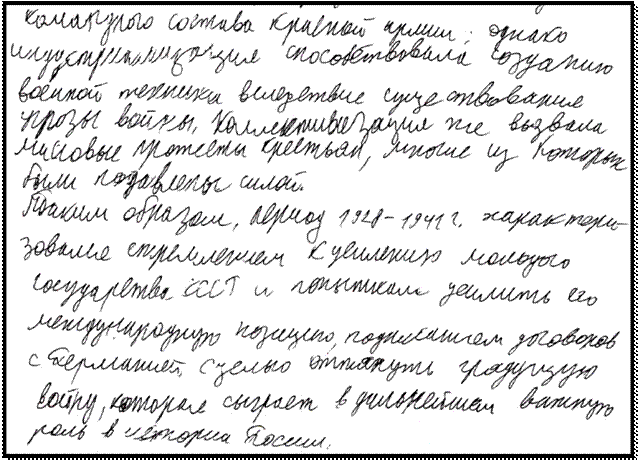 командного состава Красной армии; однако
индустриализация способствовала созданию
военной техники вследствие существования
угрозы войны. Коллективизация же вызвала
массовые протесты крестьян, многие из которых
были подавлены силой.
Таким образом, период 1928-1941 г. характери-
зовался стремлением к усилению молодого
государства СССР и попытками усилить его
международную позицию, подписанием договоров
с Германией с целью оттянуть грядущую
войну, которая сыграет в дальнейшем важную
роль в истории России.